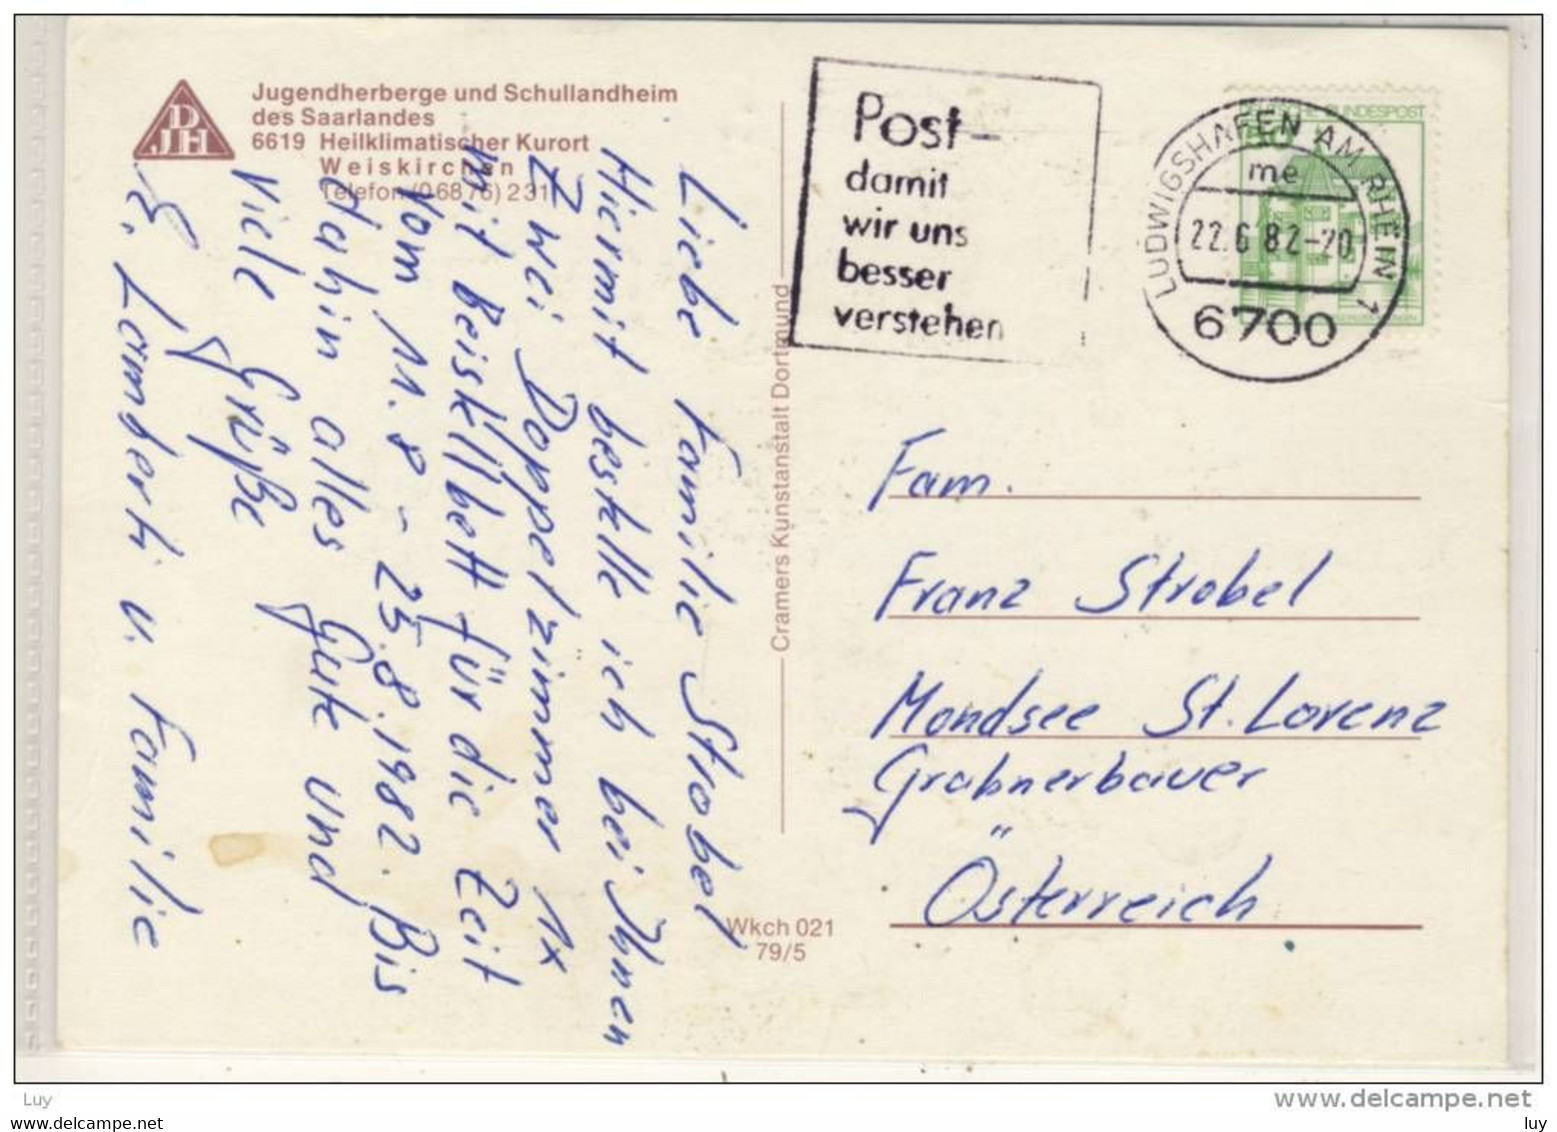 Jugendherberge und Schullandheim
des Saarlandes
6619 Heilklimatischer Kurort
Weiskirchen
Telefon (06876) 231
DJH
Liebe Familie Strobel
Hiermit bestelle ich bei Ihnen
Zwei Doppelzimmer 1x
mit Beistellbett für die Zeit
vom 11.8 - 25.8.1982. Bis
dahin alles Gute und
Viele Grüße
E. Lamberti u. Familie
Cramers Kunstanstalt Dortmund
Wkch 021
79/5
Post-
damit
wir uns
besser
verstehen
LUDWIGSHAFEN AM RHEIN 1
me
22.6.82-20
6700
BUNDESPOST
Fam.
Franz Strobel
Mondsee St. Lorenz
Grabnerbauer
Österreich
Luy
www.delcampe.net
luy
www.delcampe.net
luy